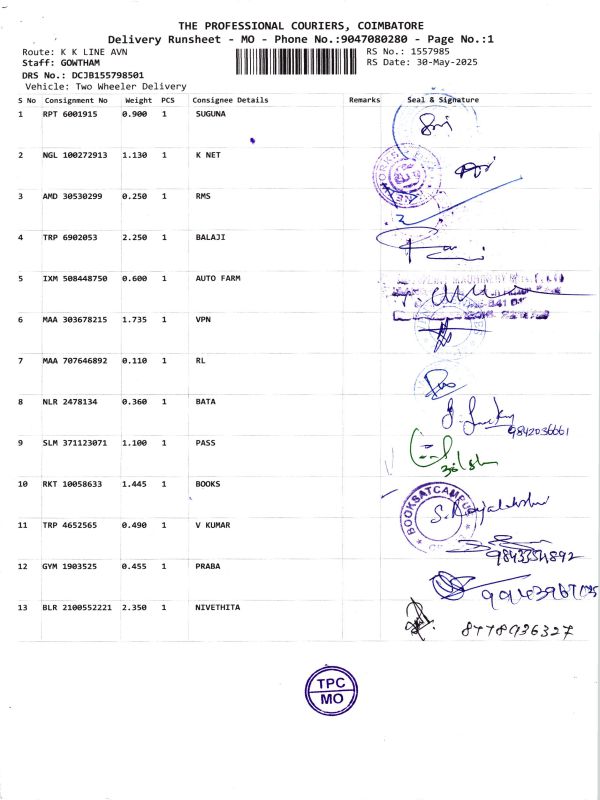 THE PROFESSIONAL COURIERS, COIMBATORE
Delivery Runsheet - MO - Phone No.:9047080280 - Page No.:1
Route: K K LINE AVN RS No.: 1557985
Staff: GOWTHAM RS Date: 30-May-2025
DRS No.: DCJB155798501
Vehicle: Two Wheeler Delivery
S No Consignment No Weight PCS Consignee Details Remarks Seal & Signature
1 RPT 6001915 0.900 1 SUGUNA
2 NGL 100272913 1.130 1 K NET
3 AMD 30530299 0.250 1 RMS
4 TRP 6902053 2.250 1 BALAJI
5 IXM 508448750 0.600 1 AUTO FARM
6 MAA 303678215 1.735 1 VPN
7 MAA 707646892 0.110 1 RL
8 NLR 2478134 0.360 1 BATA
9842036661
9 SLM 371123071 1.100 1 PASS
10 RKT 10058633 1.445 1 BOOKS
BOOKSATCAMPUS
11 TRP 4652565 0.490 1 V KUMAR
9843354892
12 GYM 1903525 0.455 1 PRABA
13 BLR 2100552221 2.350 1 NIVETHITA
8778936327
TPC
MO